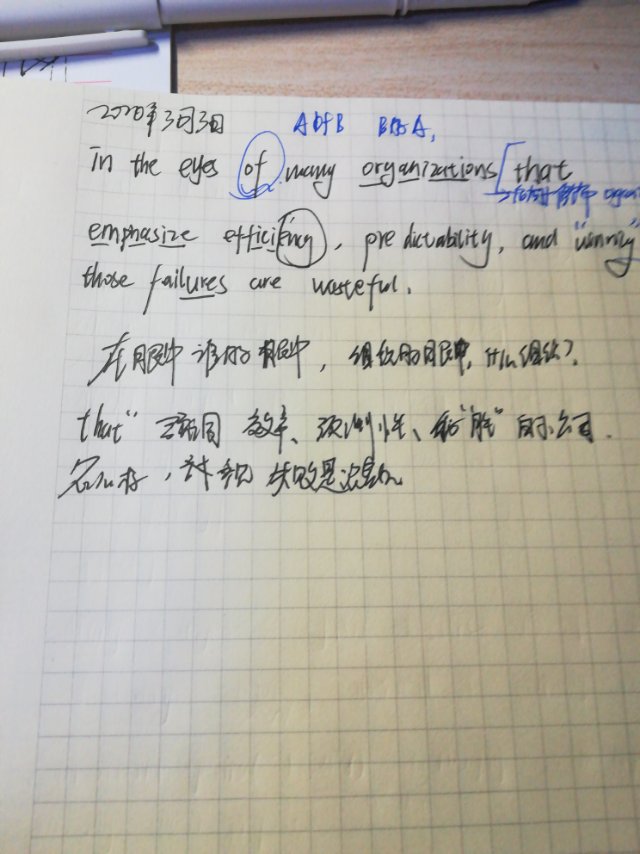 2020年3月3日 A of B B的A,
in the eyes of many organizations that
emphasize efficiency, predictability, and "winning"
those failures are wasteful.
在眼中 谁的眼中, 组织的眼中, 什么组织?
that" 强调 效率、预测性、和"胜"的公司.
失败是浪费